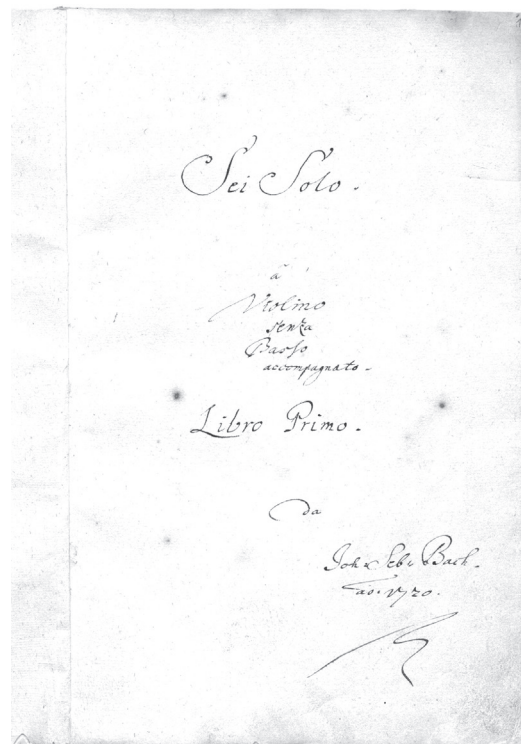 Sei Solo.
â
Violino
senza
Basso
accompagnato.
Libro Primo.
da
Joh: Seb: Bach.
ao. 1720.